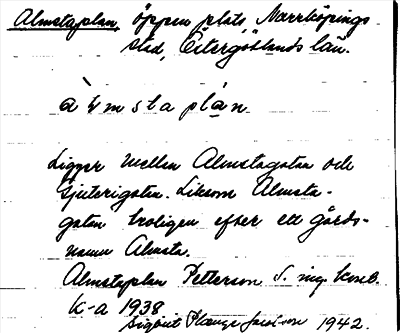 Almstaplan, öppen plats, Norrköpings
stad, Östergötlands län.
àlmstaplán
Ligger mellan Almstagatan och
Gjuterigatan. Liksom Almsta-
gatan troligen efter ett gårds-
namn Almsta.
Almstaplan Petterson S. ing
K-a 1938.
Sigbrit 1942.